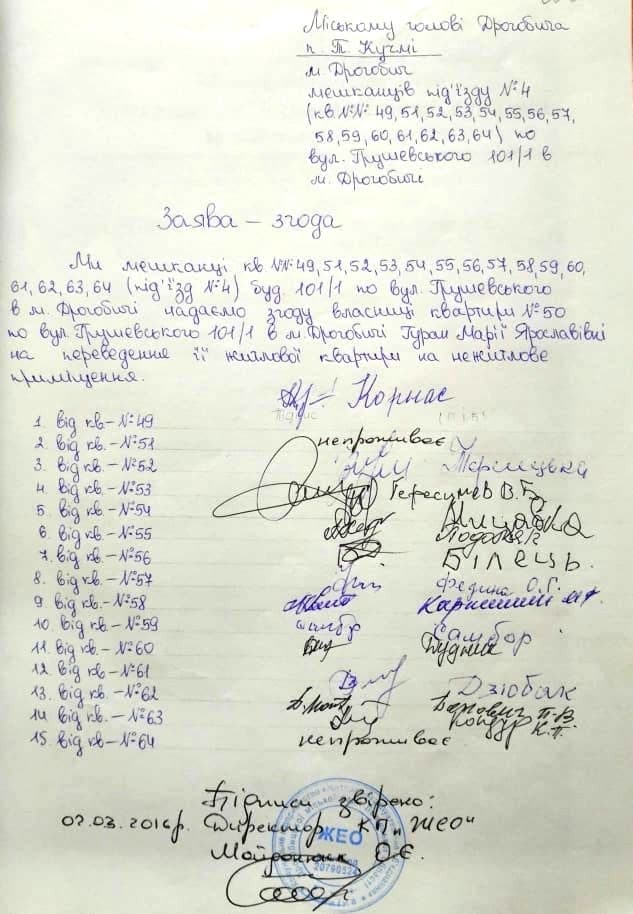 Міському голові Дрогобича
п. Т. Кучмі
м. Дрогобич
мешканців під'їзду №4
(кв.№№ 49,51,52,53,54,55,56,57,
58,59,60,61,62,63,64) по
вул. Грушевського 101/1 в
м. Дрогобичі
Заява – згода
Ми мешканці кв №№49,51,52,53,54,55,56,57,58,59,60,
61,62,63,64 (під'їзд №4) буд. 101/1 по вул. Грушевського
в м. Дрогобичі надаємо згоду власниці квартири №50
по вул. Грушевського 101/1 в м. Дрогобичі Гурал Марії Ярославівні
на переведення її житлової квартири на нежитлове
приміщення.
1. від кв.-№49 Корнас
2. від кв.-№51 непроживає
3. від кв.-№52
4. від кв.-№53 Герасимів В.Б.
5. від кв.-№54
6. від кв.-№55
7. від кв.-№56 Білець.
8. від кв.-№57 Федина О.Г.
9. від кв.-№58
10. від кв.-№59 Самбор
11. від кв-№60 Будник
12. від кв-№61
13. від кв.-№62 Дзюбак
14. від кв.-№63
15. від кв-№64 непроживає
Підписи звірено:
02.03.2016р. Директор КП „ЖЕО"
О.Є.
ЖЕО
20790524